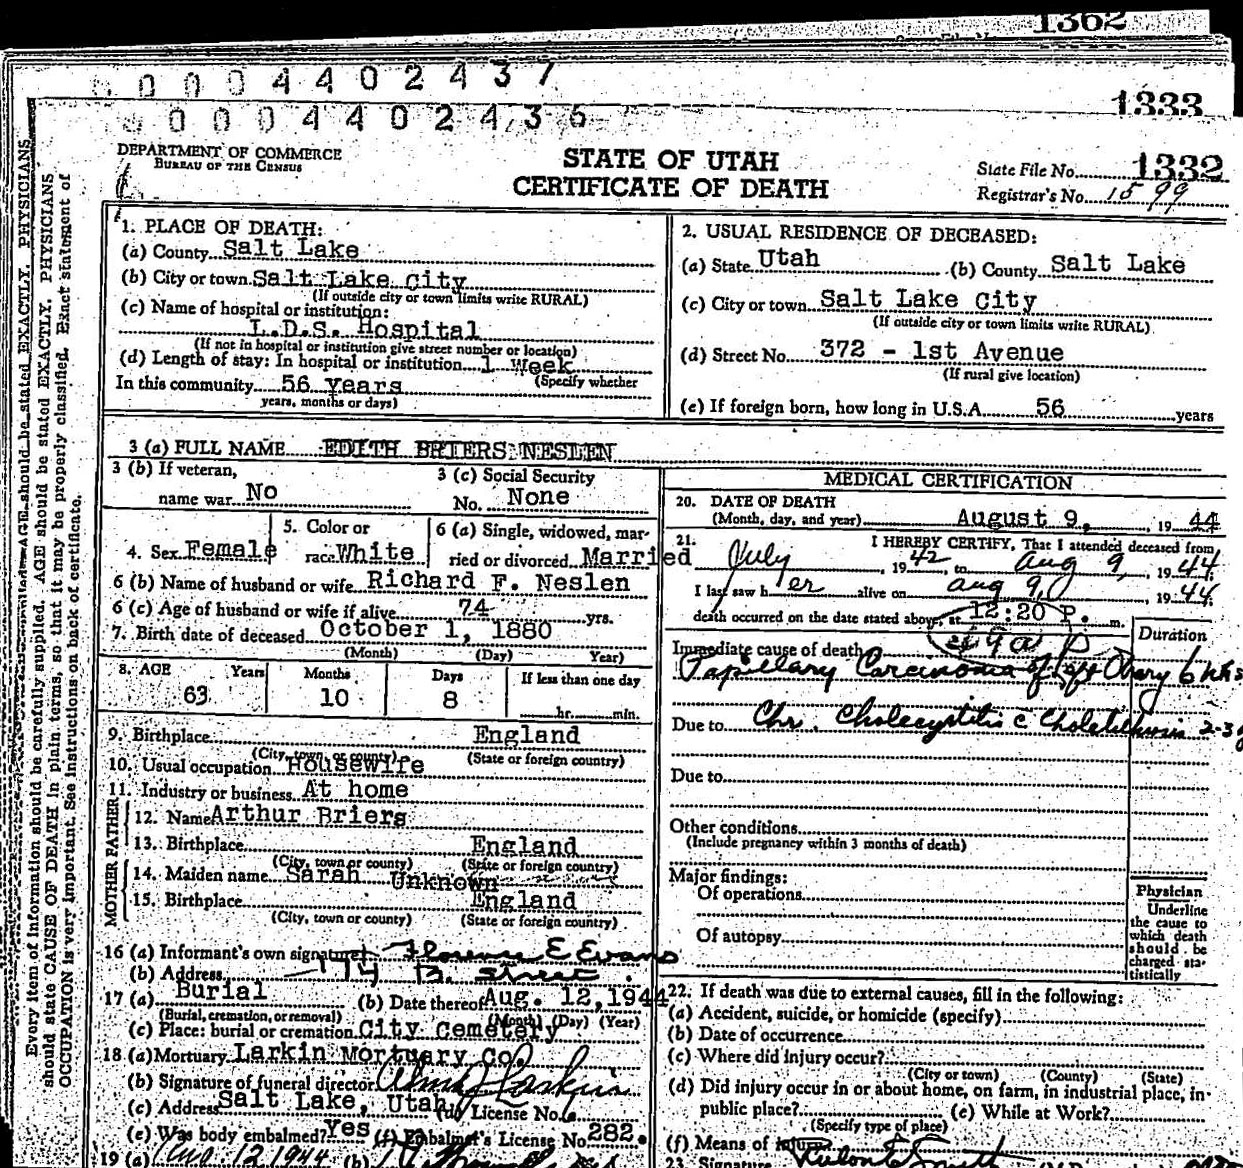 1362
0 0 0 4 4 0 2 4 3 7
1333
0 0 0 4 4 0 2 4 3 6
DEPARTMENT OF COMMERCE
BUREAU OF THE CENSUS
STATE OF UTAH
CERTIFICATE OF DEATH
State File No. 1332
Registrar's No. 1599
Every item of information should be carefully supplied. AGE should be stated EXACTLY. PHYSICIANS
should state CAUSE OF DEATH in plain terms, so that it may be properly classified. Exact statement of
OCCUPATION is very important. See instructions on back of certificate.
1. PLACE OF DEATH:
(a) County Salt Lake
(b) City or town Salt Lake City
(If outside city or town limits write RURAL)
(c) Name of hospital or institution:
L.D.S. Hospital
(If not in hospital or institution give street number or location)
(d) Length of stay: In hospital or institution 1 Week
(Specify whether
In this community 56 Years
years, months or days)
2. USUAL RESIDENCE OF DECEASED:
(a) State Utah (b) County Salt Lake
(c) City or town Salt Lake City
(If outside city or town limits write RURAL)
(d) Street No. 372 - 1st Avenue
(If rural give location)
(e) If foreign born, how long in U.S.A. 56 years
3 (a) FULL NAME EDITH BRIERS NESLEN
3 (b) If veteran,
name war No
3 (c) Social Security
No. None
4. Sex Female
5. Color or
race White
6 (a) Single, widowed, mar-
ried or divorced Married
6 (b) Name of husband or wife Richard F. Neslen
6 (c) Age of husband or wife if alive 74 yrs.
7. Birth date of deceased October 1, 1880
(Month) (Day) Year)
8. AGE Years Months Days If less than one day
63 10 8 hr. min.
9. Birthplace England
(City, town or county) (State or foreign country)
10. Usual occupation Housewife
11. Industry or business At home
FATHER
12. Name Arthur Briers
13. Birthplace England
(City, town or county) (State or foreign country)
MOTHER
14. Maiden name Sarah Unknown
15. Birthplace England
(City, town or county) (State or foreign country)
16 (a) Informant's own signature Florence E Evans
(b) Address 174 B. Street
17 (a) Burial (b) Date thereof Aug. 12, 1944
(Burial, cremation, or removal) (Month) (Day) (Year)
(c) Place: burial or cremation City Cemetery
18 (a) Mortuary Larkin Mortuary Co.
(b) Signature of funeral director Larkin
(c) Address Salt Lake, Utah (d) License No.
(e) Was body embalmed? Yes (f) Embalmer's License No. 282.
19 (a) Aug 12 1944 (b)
MEDICAL CERTIFICATION
20. DATE OF DEATH
(Month, day, and year) August 9, 19 44
21. I HEREBY CERTIFY, That I attended deceased from
July, 19 42 to Aug 9, 19 44;
I last saw h er alive on Aug 9, 19 44;
death occurred on the date stated above, at 12:20 P. m.
Immediate cause of death
Duration
Papillary Carcinoma of left Ovary 6
Due to Chr. Cholecystitis c Cholelithiasis 2-3
Due to
Other conditions
(Include pregnancy within 3 months of death)
Major findings:
Of operations
Of autopsy
Physician
Underline
the cause to
which death
should be
charged sta-
tistically
22. If death was due to external causes, fill in the following:
(a) Accident, suicide, or homicide (specify)
(b) Date of occurrence
(c) Where did injury occur?
(City or town) (County) (State)
(d) Did injury occur in or about home, on farm, in industrial place, in-
public place? (e) While at Work?
(Specify type of place)
(f) Means of injury
23. Signature Smith